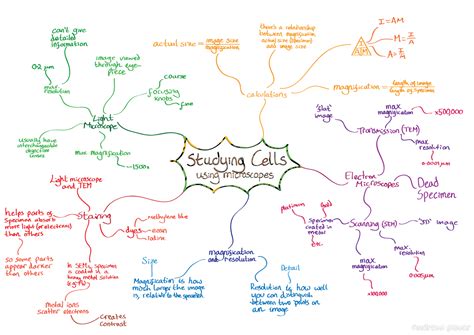 Studying Cells
using microscopes
Light
Microscope
can't give
detailed
information
0.2 µm
max.
resolution
image viewed
through eye-
piece
focusing
knobs
coarse
fine
usually have
interchangeable
objective
lenses
max. magnification
x1500
calculations
actual size = image size
magnification
there's a relationship
between magnification,
actual size (specimen)
and image size
I
A M
I = AM
M = I
A
A = I
M
magnification = length of image
length of specimen
Electron
Microscopes
Transmission (TEM)
'flat'
image
max.
magnification
x500,000
max.
resolution
Dead
Specimen
Scanning (SEM)
'3D' image
specimen
coated in
metal
platinum
gold
etc.
max.
magnification
x100,000
max.
resolution
0.005µm
magnification
and resolution
Size
Magnification is how
much larger the image
is, relative to the specimen
Detail
Resolution is how well
you can distinguish
between two points on
an image
Staining
Light microscope
and TEM
helps parts of
specimen absorb
more light (or electrons)
than others
so some parts
appear darker than
others
dyes
methylene blue
eosin
In SEM, specimen is
coated in a
heavy metal solution
metal ions
scatter electrons
creates
contrast